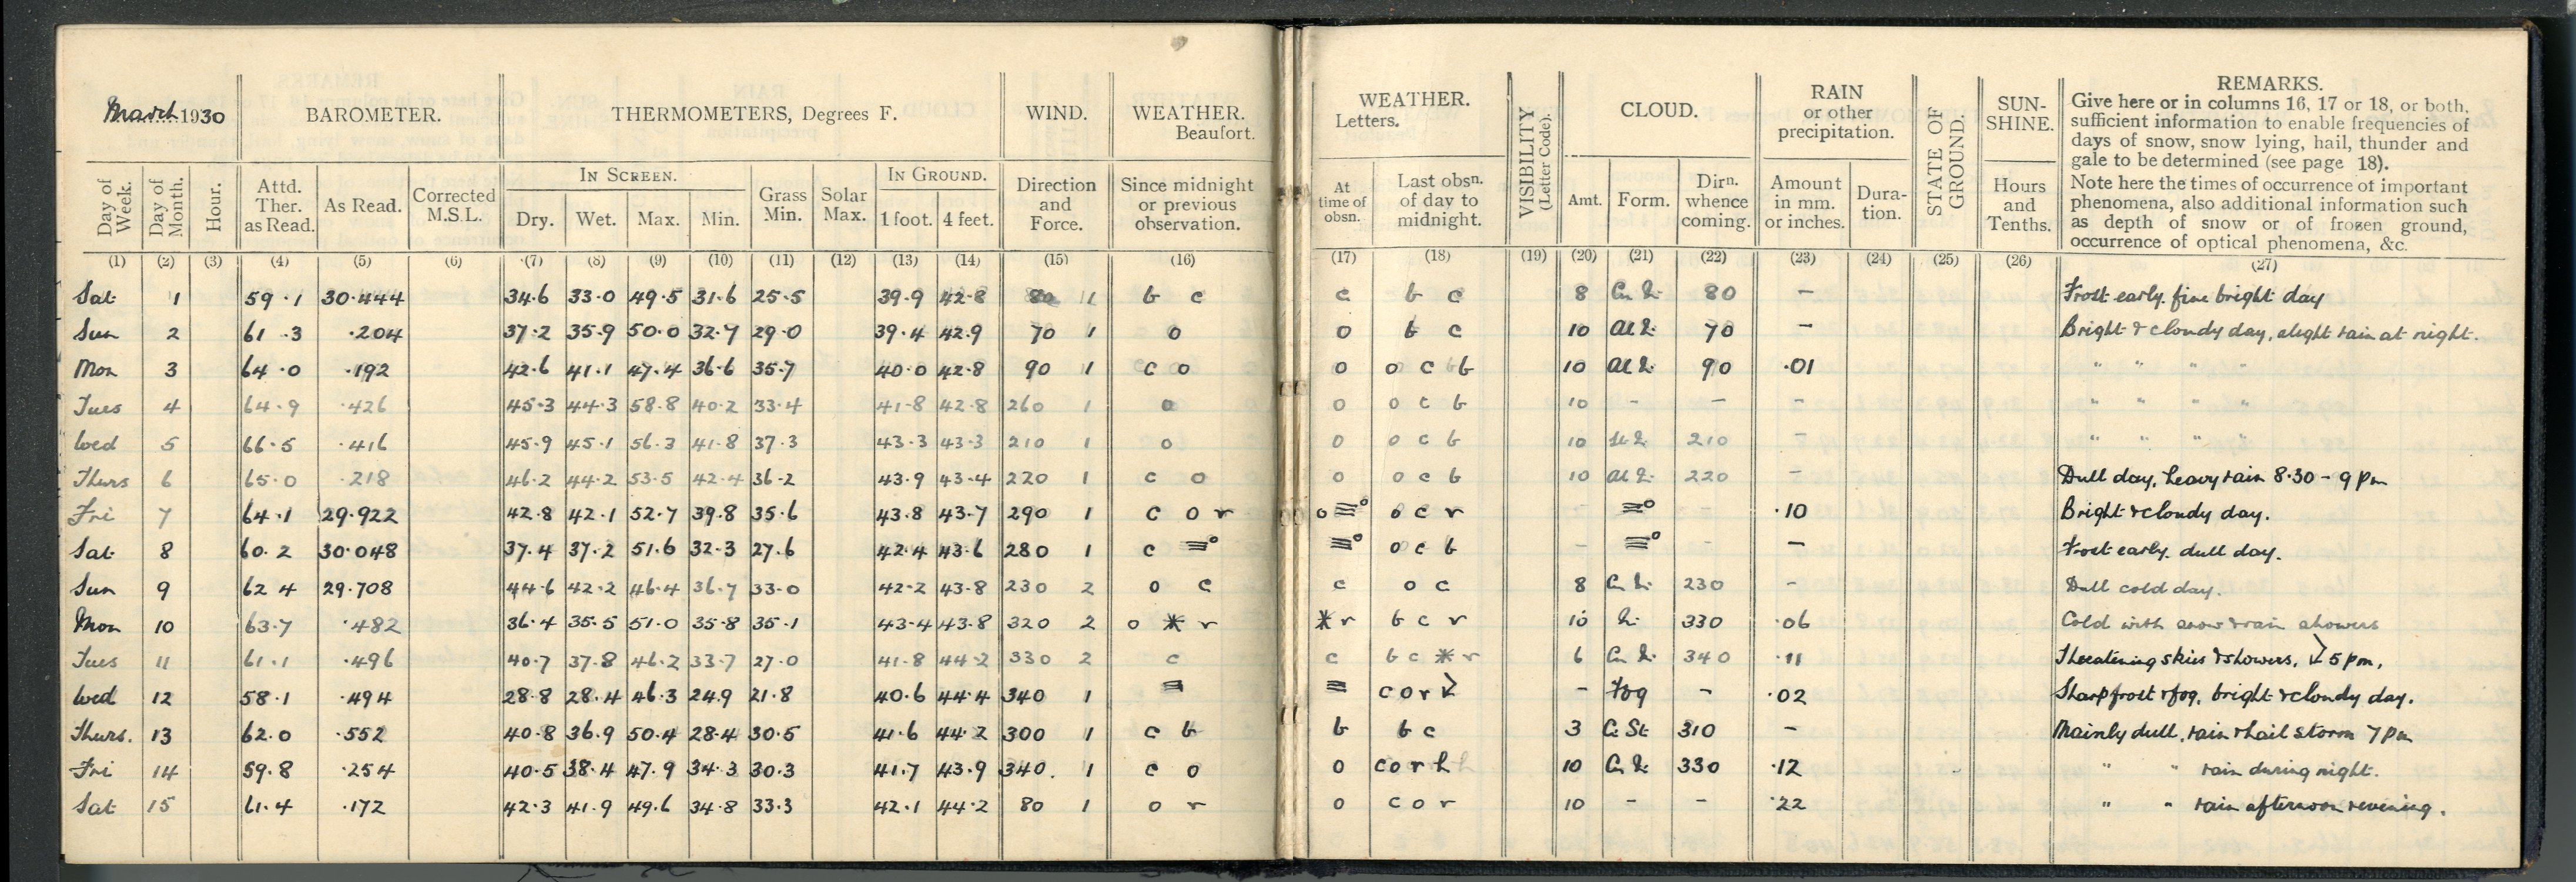 March 1930 BAROMETER. THERMOMETERS, Degrees F. WIND. WEATHER. Beaufort. WEATHER. Letters. VISIBILITY (Letter Code). CLOUD. RAIN or other precipitation. STATE OF GROUND. SUN-SHINE. REMARKS.
Give here or in columns 16, 17 or 18, or both,
sufficient information to enable frequencies of
days of snow, snow lying, hail, thunder and
gale to be determined (see page 18).
Note here the times of occurrence of important
phenomena, also additional information such
as depth of snow or of frozen ground,
occurrence of optical phenomena, &c.
Day of Week. Day of Month. Hour. Attd. Ther. as Read. As Read. Corrected M.S.L. IN SCREEN. Dry. Wet. Max. Min. Grass Min. Solar Max. IN GROUND. 1 foot. 4 feet. Direction and Force. Since midnight or previous observation. At time of obsn. Last obsn. of day to midnight. Amt. Form. Dirn. whence coming. Amount in mm. or inches. Dura-tion. Hours and Tenths.
(1) (2) (3) (4) (5) (6) (7) (8) (9) (10) (11) (12) (13) (14) (15) (16) (17) (18) (19) (20) (21) (22) (23) (24) (25) (26) (27)
Sat 1 59.1 30.444 34.6 33.0 49.5 31.6 25.5 39.9 42.8 80 1 b c c b c 8 80 – Frost early. fine bright day
Sun 2 61.3 .204 37.2 35.9 50.0 32.7 29.0 39.4 42.9 70 1 o o b c 10 70 – Bright & cloudy day, slight rain at night.
Mon 3 64.0 .192 42.6 41.1 47.4 36.6 35.7 40.0 42.8 90 1 c o o o c b 10 90 .01 " " " "
Tues 4 64.9 .426 45.3 44.3 58.8 40.2 33.4 41.8 42.8 260 1 o o o c b 10 – – – " " " "
Wed 5 66.5 .416 45.9 45.1 56.3 41.8 37.3 43.3 43.3 210 1 o o o c b 10 210 – " " " "
Thurs 6 65.0 .218 46.2 44.2 53.5 42.4 36.2 43.9 43.4 220 1 c o o o c b 10 220 – Dull day, heavy rain 8.30 – 9 pm
Fri 7 64.1 29.922 42.8 42.1 52.7 39.8 35.6 43.8 43.7 290 1 c o r o≡° o c r – ≡° – .10 Bright & cloudy day.
Sat 8 60.2 30.048 37.4 37.2 51.6 32.3 27.6 42.4 43.6 280 1 c ≡° ≡° o c b – ≡° – – Frost early. dull day.
Sun 9 62.4 29.708 44.6 42.2 46.4 36.7 33.0 42.2 43.8 230 2 o c c o c 8 230 – Dull cold day.
Mon 10 63.7 .482 36.4 35.5 51.0 35.8 35.1 43.4 43.8 320 2 o * r * r b c r 10 330 .06 Cold with snow & rain showers
Tues 11 61.1 .496 40.7 37.8 46.2 33.7 27.0 41.8 44.2 330 2 c c b c * r 6 340 .11 Threatening skies & showers, 5 pm.
Wed 12 58.1 .494 28.8 28.4 46.3 24.9 21.8 40.6 44.4 340 1 ≡ ≡ c o r – Fog – .02 Sharp frost & fog, bright & cloudy day.
Thurs. 13 62.0 .552 40.8 36.9 50.4 28.4 30.5 41.6 44.2 300 1 c b b b c 3 C. St. 310 – Mainly dull, rain & hail storm 7 pm
Fri 14 59.8 .254 40.5 38.4 47.9 34.3 30.3 41.7 43.9 340. 1 c o o c o r h 10 330 .12 " " rain during night.
Sat 15 61.4 .172 42.3 41.9 49.6 34.8 33.3 42.1 44.2 80 1 o r o c o r 10 – – .22 " " rain afternoon & evening.